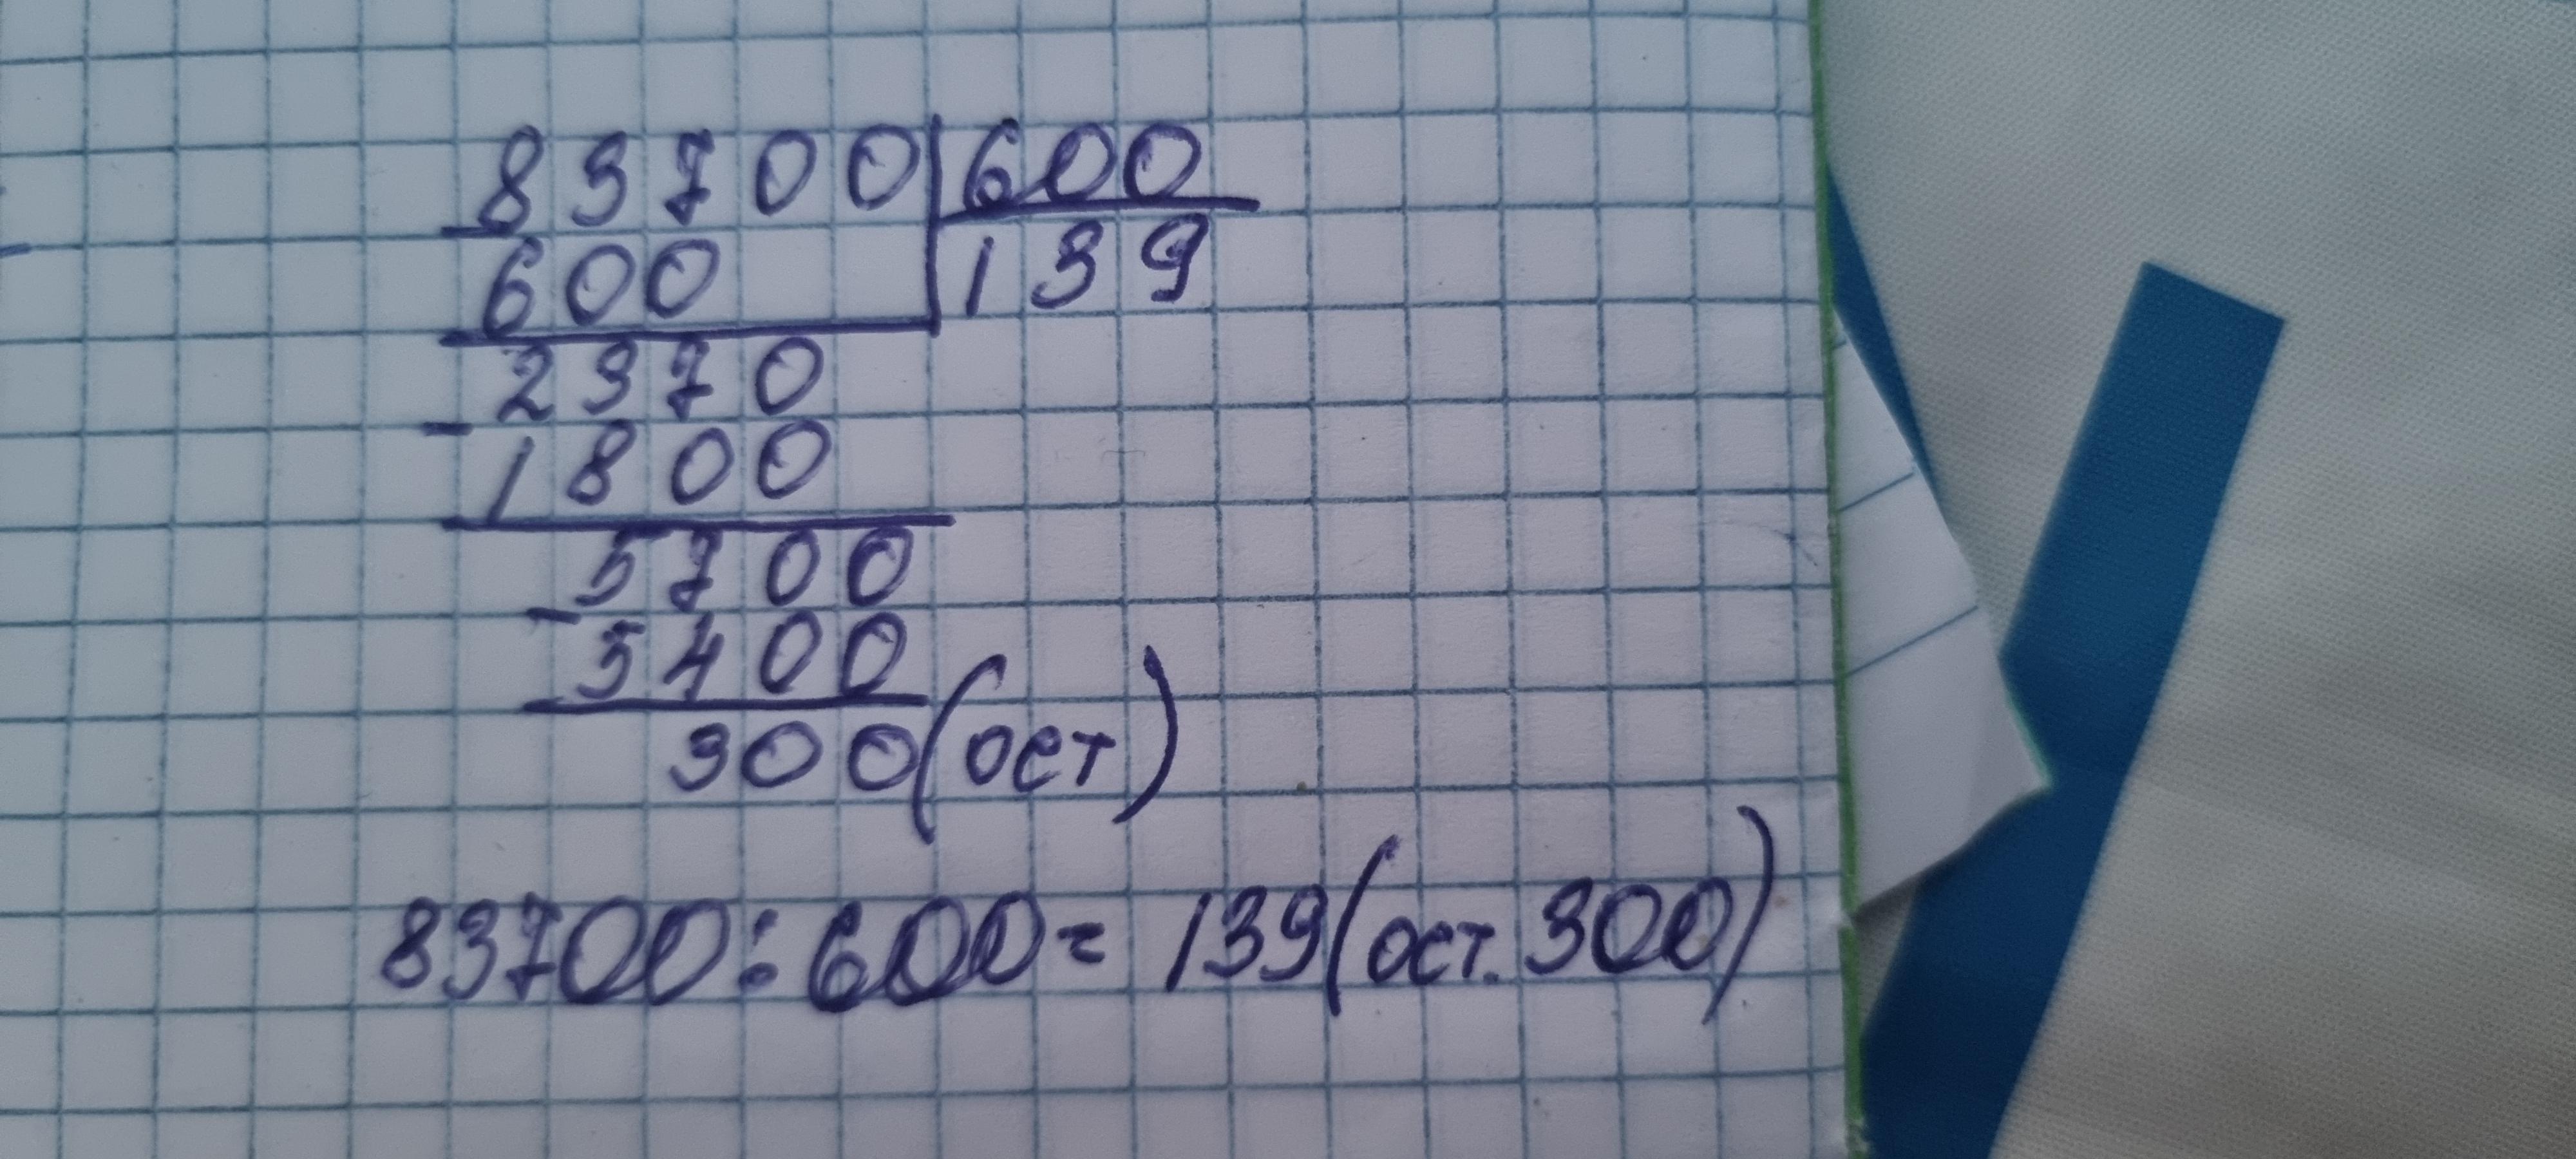 83700 | 600
- 600 | 139
2370
- 1800
5700
- 5400
300 (ост)
83700 : 600 = 139 (ост. 300)